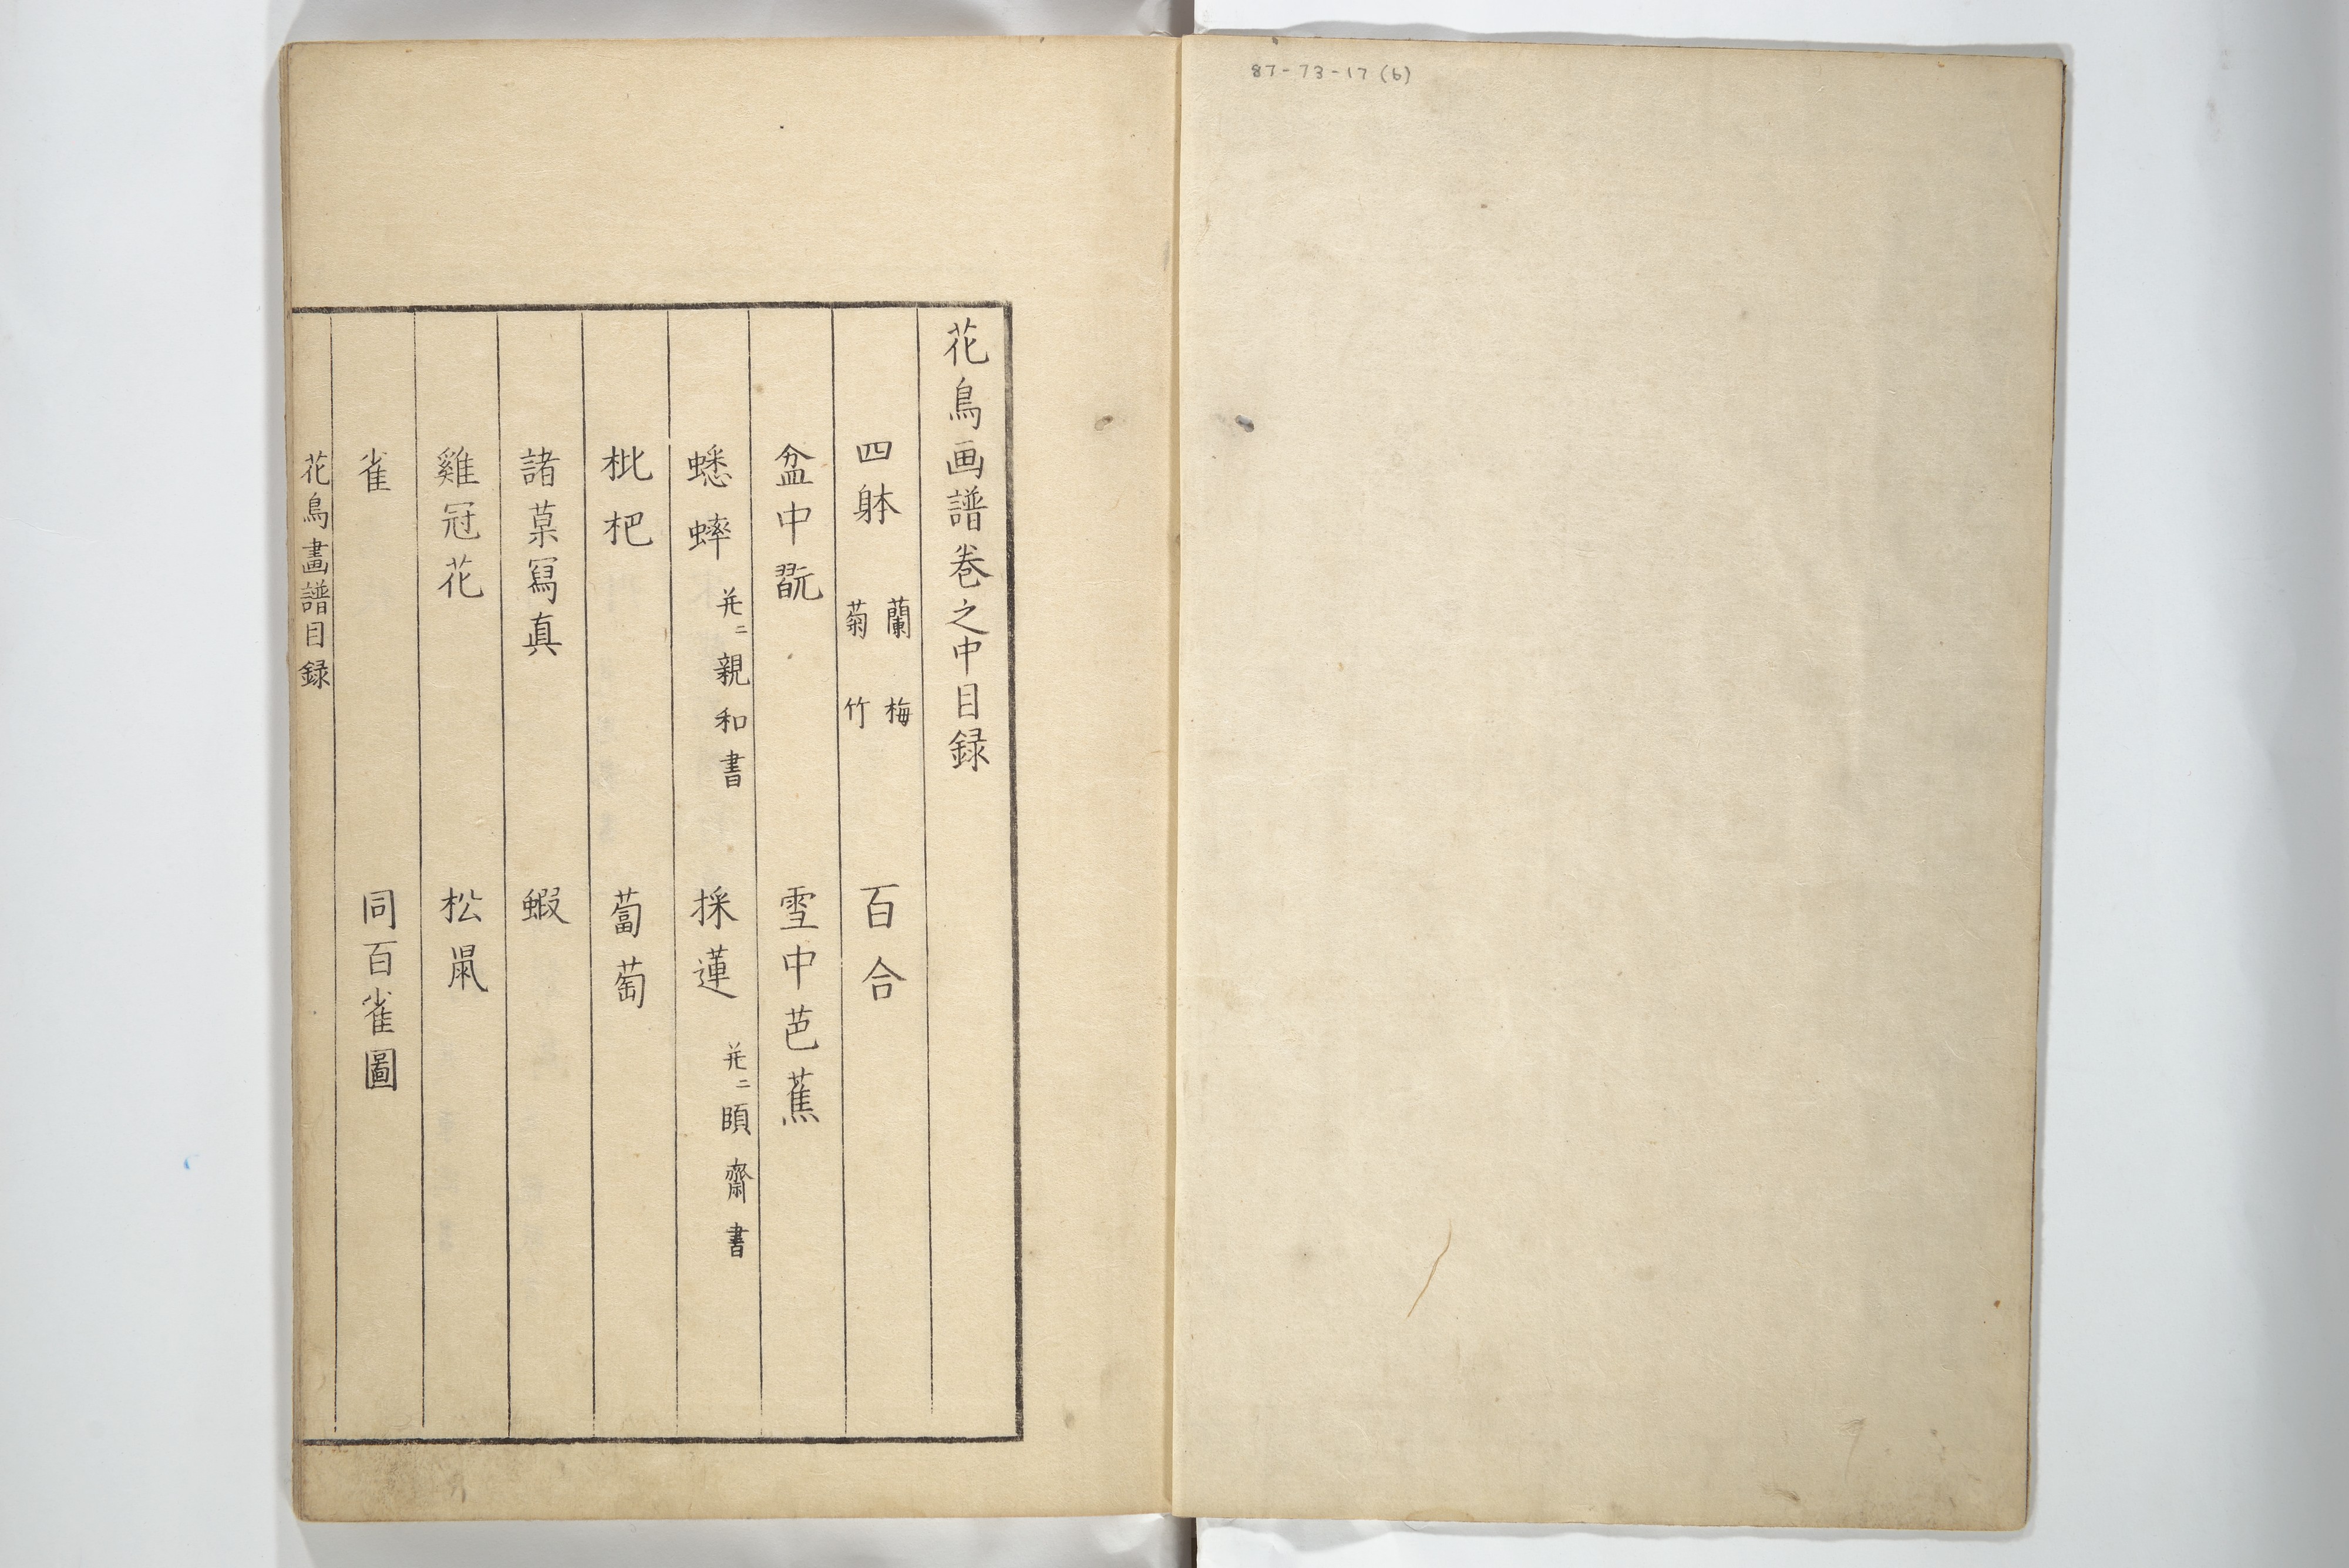 87-73-17(b)
花鳥画譜巻之中目録
四躰 蘭 梅 菊 竹 百合
盆中翫 雪中芭蕉
蟋蟀 并ニ親和書 採蓮 并ニ頤齋書
枇杷 蔔萄
諸菓寫真 蝦
雞冠花 松鼠
雀 同百雀圖
花鳥畫譜目録